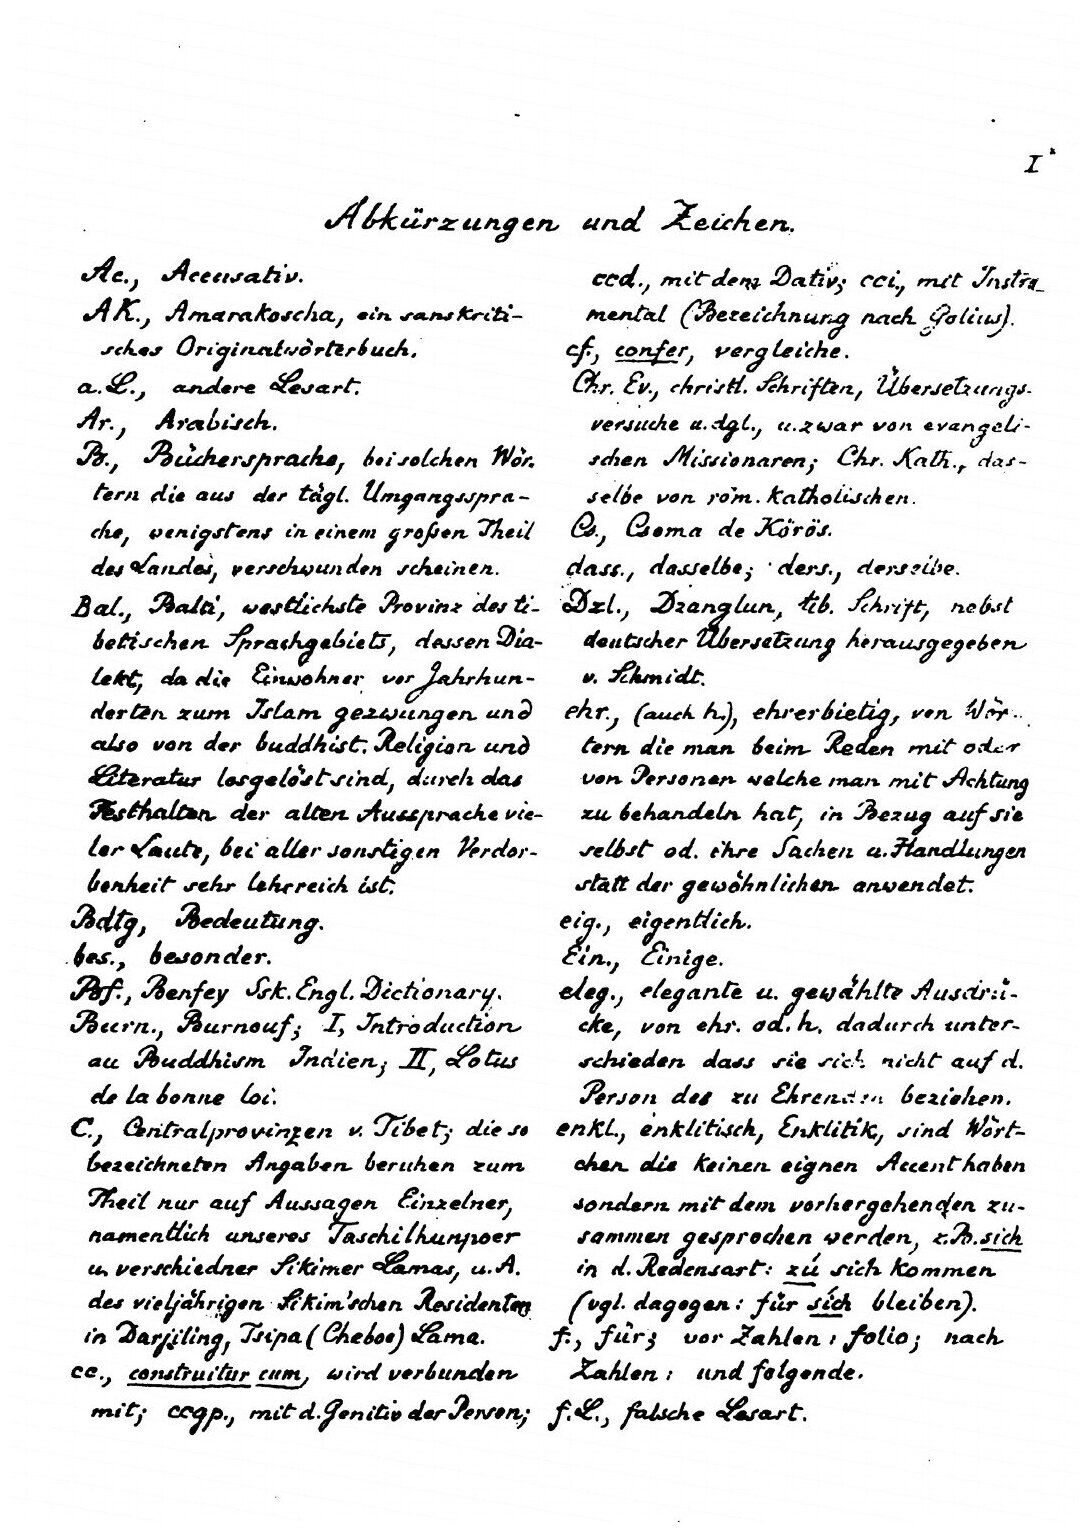 I
Abkürzungen und Zeichen.
Ac., Accusativ.
AK., Amarakoscha, ein sanskriti-
sches Originalwörterbuch.
a.L., andere Lesart.
Ar., Arabisch.
B., Büchersprache, bei solchen Wör-
tern die aus der tägl. Umgangsspra-
che, wenigstens in einem großen Theil
des Landes, verschwunden scheinen.
Bal., Balti, westlichste Provinz des ti-
betischen Sprachgebiets, dessen Dia-
lekt, da die Einwohner vor Jahrhun-
derten zum Islam gezwungen und
also von der buddhist. Religion und
Literatur losgelöst sind, durch das
Festhalten der alten Aussprache vie-
ler Laute, bei aller sonstigen Verdor-
benheit sehr lehrreich ist.
Bdtg, Bedeutung.
bes., besonder.
Bf., Benfey Ssk. Engl. Dictionary.
Burn., Burnouf; I, Introduction
au Buddhism Indien; II, Lotus
de la bonne loi.
C., Centralprovinzen v. Tibet; die so
bezeichneten Angaben beruhen zum
Theil nur auf Aussagen Einzelner,
namentlich unseres Taschilhunpoer
u. verschiedner Sikimer Lamas, u. A.
des vieljährigen Sikim'schen Residenten
in Darjiling, Tsipa (Cheboo) Lama.
cc., construitur cum, wird verbunden
mit; ccgp., mit d. Genitiv der Person;
ccd., mit dem Dativ; cci., mit Instru-
mental (Bezeichnung nach Golius).
cf., confer, vergleiche.
Chr. Ev., christl. Schriften, Übersetzungs-
versuche u. dgl., u. zwar von evangeli-
schen Missionaren; Chr. Kath., das-
selbe von röm. katholischen.
Cs., Csoma de Körös.
dass., dasselbe; ders., derselbe.
Dzl., Dzanglun, tib. Schrift, nebst
deutscher Übersetzung herausgegeben
v. Schmidt.
ehr., (auch h.), ehrerbietig, von Wör-
tern die man beim Reden mit oder
von Personen welche man mit Achtung
zu behandeln hat, in Bezug auf sie
selbst od. ihre Sachen u. Handlungen
statt der gewöhnlichen anwendet.
eig., eigentlich.
Ein., Einige.
eleg., elegante u. gewählte Ausdrü-
cke, von ehr. od. h. dadurch unter-
schieden dass sie sich nicht auf d.
Person des zu Ehrenden beziehen.
enkl., enklitisch, Enklitik, sind Wört-
chen die keinen eignen Accent haben
sondern mit dem vorhergehenden zu-
sammen gesprochen werden, z.B. sich
in d. Redensart: zú sich kommen
(vgl. dagegen: für sích bleiben).
f., für; vor Zahlen: folio; nach
Zahlen: und folgende.
f.L., falsche Lesart.